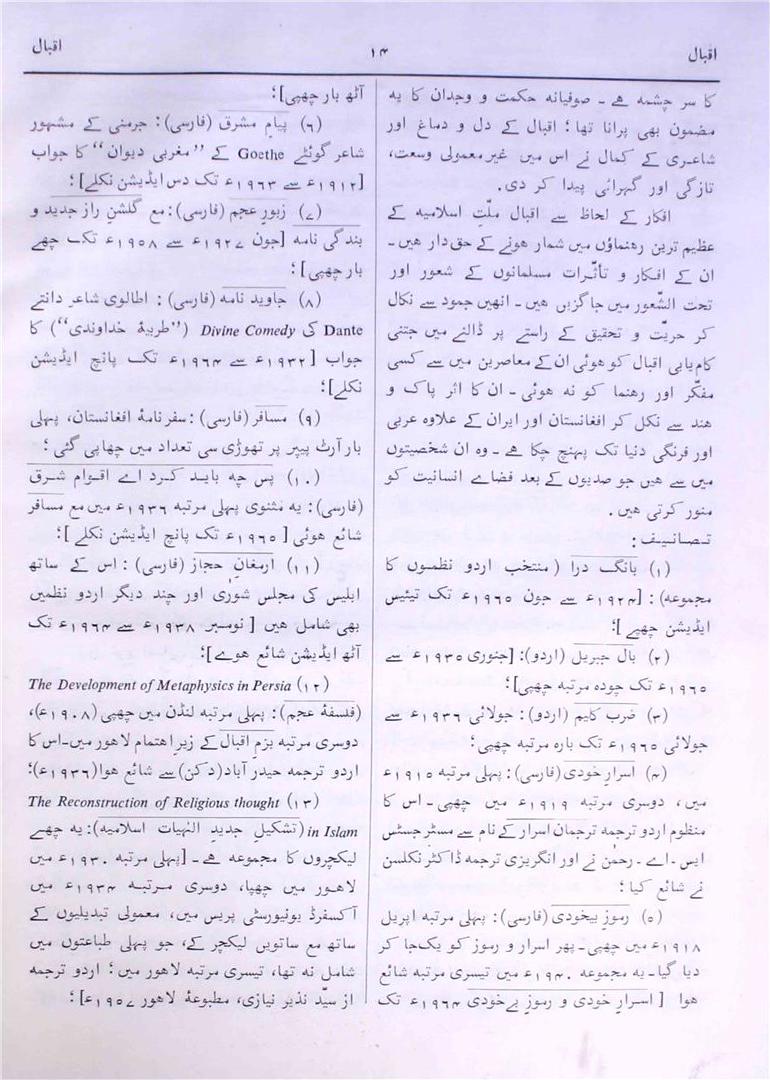 اقبال ۱۴ اقبال
کا سر چشمہ ھے ۔ صوفیانہ حکمت و وجدان کا یہ
مضمون بھی پرانا تھا؛ اقبال کے دل و دماغ اور
شاعری کے کمال نے اس میں غیر معمولی وسعت،
تازگی اور گہرائی پیدا کر دی۔
افکار کے لحاظ سے اقبال ملّتِ اسلامیہ کے
عظیم ترین رھنماؤں میں شمار ھونے کے حق‌دار ھیں۔
ان کے افکار و تأثّرات مسلمانوں کے شعور اور
تحت الشّعور میں جاگزیں ھیں۔ انھیں جمود سے نکال
کر حریّت و تحقیق کے راستے پر ڈالنے میں جتنی
کام‌یابی اقبال کو ھوئی ان کے معاصرین میں سے کسی
مفکّر اور رھنما کو نہ ھوئی ۔ ان کا اثر پاک و
ھند سے نکل کر افغانستان اور ایران کے علاوہ عربی
اور فرنگی دنیا تک پہنچ چکا ھے ۔ وہ ان شخصیتوں
میں سے ھیں جو صدیوں کے بعد فضاے انسانیت کو
منور کرتی ھیں ۔
تصانیف :
(۱) بانگ درا ( منتخب اردو نظموں کا
مجموعہ) : [۱۹۲۴ء سے جون ۱۹۶۵ء تک تیئیس
ایڈیشن چھپے ]؛
(۲) بال جبریل (اردو): [جنوری ۱۹۳۵ء سے
۱۹۶۵ء تک چودہ مرتبہ چھپی]؛
(۳) ضرب کلیم (اردو): جولائی ۱۹۳۶ء سے
جولائی ۱۹۶۵ء تک بارہ مرتبہ چھپی؛
(۴) اسرار خودی (فارسی): پہلی مرتبہ ۱۹۱۵ء
میں، دوسری مرتبہ ۱۹۱۹ء میں چھپی ۔ اس کا
منظوم اردو ترجمہ ترجمان اسرار کے نام سے مسٹر جسٹس
ایس ۔ اے ۔ رحمٰن نے اور انگریزی ترجمہ ڈاکٹر نکلسن
نے شائع کیا؛
(۵) رموز بیخودی (فارسی): پہلی مرتبہ اپریل
۱۹۱۸ء میں چھپی ۔ پھر اسرار و رموز کو یک‌جا کر
دیا گیا ۔ یہ مجموعہ ۱۹۴۰ء میں تیسری مرتبہ شائع
ھوا [ اسرارِ خودی و رموزِ بے خودی ۱۹۶۴ء تک
آٹھ بار چھپی]؛
(۶) پیامِ مشرق (فارسی): جرمنی کے مشہور
شاعر گوئٹے Goethe کے ”مغربی دیوان“ کا جواب
[۱۹۱۲ء سے ۱۹۶۳ء تک دس ایڈیشن نکلے]؛
(۷) زبورِ عجم (فارسی): مع گلشنِ راز جدید و
بندگی نامہ [جون ۱۹۲۷ء سے ۱۹۵۸ء تک چھے
بار چھپی ]؛
(۸) جاوید نامہ (فارسی) : اطالوی شاعر دانتے
Dante کی Divine Comedy (”طربیۂ خداوندی“) کا
جواب [۱۹۳۲ء سے ۱۹۶۴ء تک پانچ ایڈیشن
نکلے]؛
(۹) مسافر (فارسی): سفر نامۂ افغانستان، پہلی
بار آرٹ پیپر پر تھوڑی سی تعداد میں چھاپی گئی؛
(۱۰) پس چہ باید کرد اے اقوام شرق
(فارسی): یہ مثنوی پہلی مرتبہ ۱۹۳۶ء میں مع مسافر
شائع ھوئی [۱۹۶۵ء تک پانچ ایڈیشن نکلے ]؛
(۱۱) ارمغان حجاز (فارسی) : اس کے ساتھ
ابلیس کی مجلس شوری اور چند دیگر اردو نظمیں
بھی شامل ھیں [ نومبر ۱۹۳۸ء سے ۱۹۶۴ء تک
آٹھ ایڈیشن شائع ھوے]؛
(۱۲) The Development of Metaphysics in Persia
(فلسفۂ عجم): پہلی مرتبہ لنڈن میں چھپی (۱۹۰۸ء)،
دوسری مرتبہ بزم اقبال کے زیر اھتمام لاھور میں۔ اس کا
اردو ترجمہ حیدر آباد (دکن) سے شائع ھوا (۱۹۳۶ء)؛
(۱۳) The Reconstruction of Religious thought
in Islam (تشکیلِ جدید الٰہیات اسلامیہ): یہ چھے
لیکچروں کا مجموعہ ھے ۔ [پہلی مرتبہ ۱۹۳۰ء میں
لاھور میں چھپا، دوسری مرتبہ ۱۹۳۴ء میں
آکسفرڈ یونیورسٹی پریس میں، معمولی تبدیلیوں کے
ساتھ مع ساتویں لیکچر کے، جو پہلی طباعتوں میں
شامل نہ تھا، تیسری مرتبہ لاھور میں؛ اردو ترجمہ
از سیّد نذیر نیازی، مطبوعۂ لاھور ۱۹۵۷ء]؛